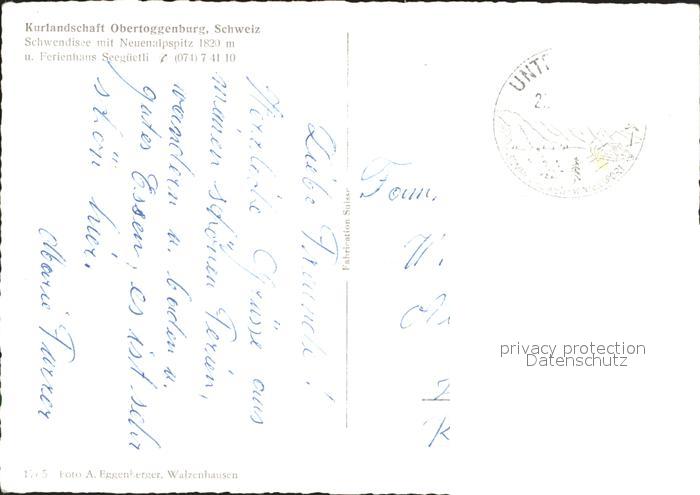 Kurlandschaft Obertoggenburg, Schweiz
Schwendisee mit Neuenalpspitz 1820 m
u. Ferienhaus Seegüetli ✆ (074) 7 41 10
Liebe Freunde!
Herzliche Grüsse aus
meinen schönen Ferien,
wandern u. baden u.
gutes Essen, es ist sehr
schön hier.
Marie Furrer
Fabrication Suisse
Fam.
W.
UNT
2
privacy protection
Datenschutz
Foto A. Eggenberger, Walzenhausen